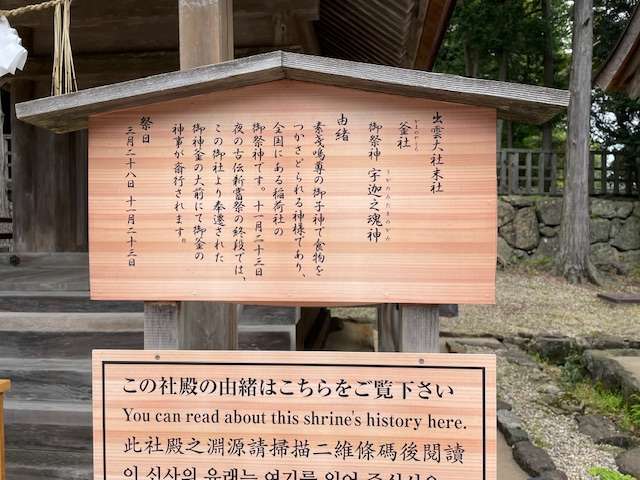 出雲大社末社
釜社
かまのやしろ
御祭神 宇迦之魂神
うかのみたまのかみ
由緒
素戔嗚尊の御子神で食物を
つかさどられる神様であり、
全国にある稲荷社の
御祭神です。十一月二十三日
夜の古伝新嘗祭の終段では、
この御社より奉遷された
御神釜の大前にて御釜の
神事が斎行されます。
祭日
三月二十八日 十一月二十三日
この社殿の由緒はこちらをご覧下さい
You can read about this shrine's history here.
此社殿之淵源請掃描二維條碼後閱讀
이 신사의 유래는 여기를 읽어 주십시오